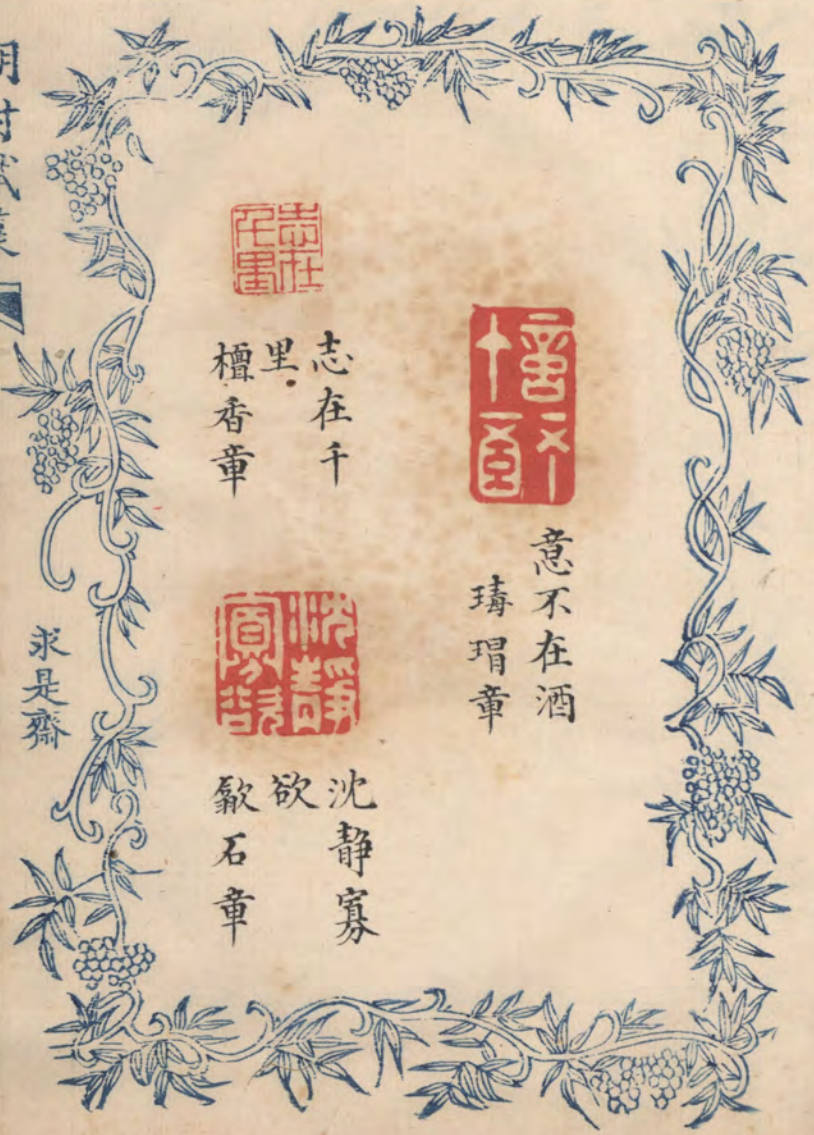 意不在酒
瑇瑁章
志在
千里
志在千
里
檀香章
沈靜
寡欲
沈静寡
欲
歙石章
求是齋